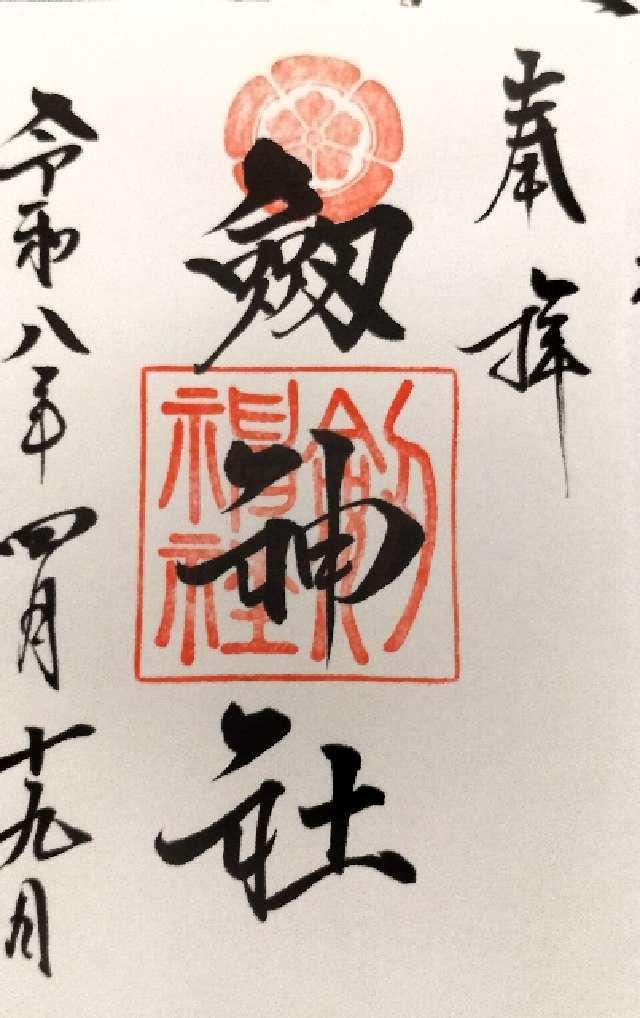 奉拝
劔神社
劔神社
令和八年四月十九日